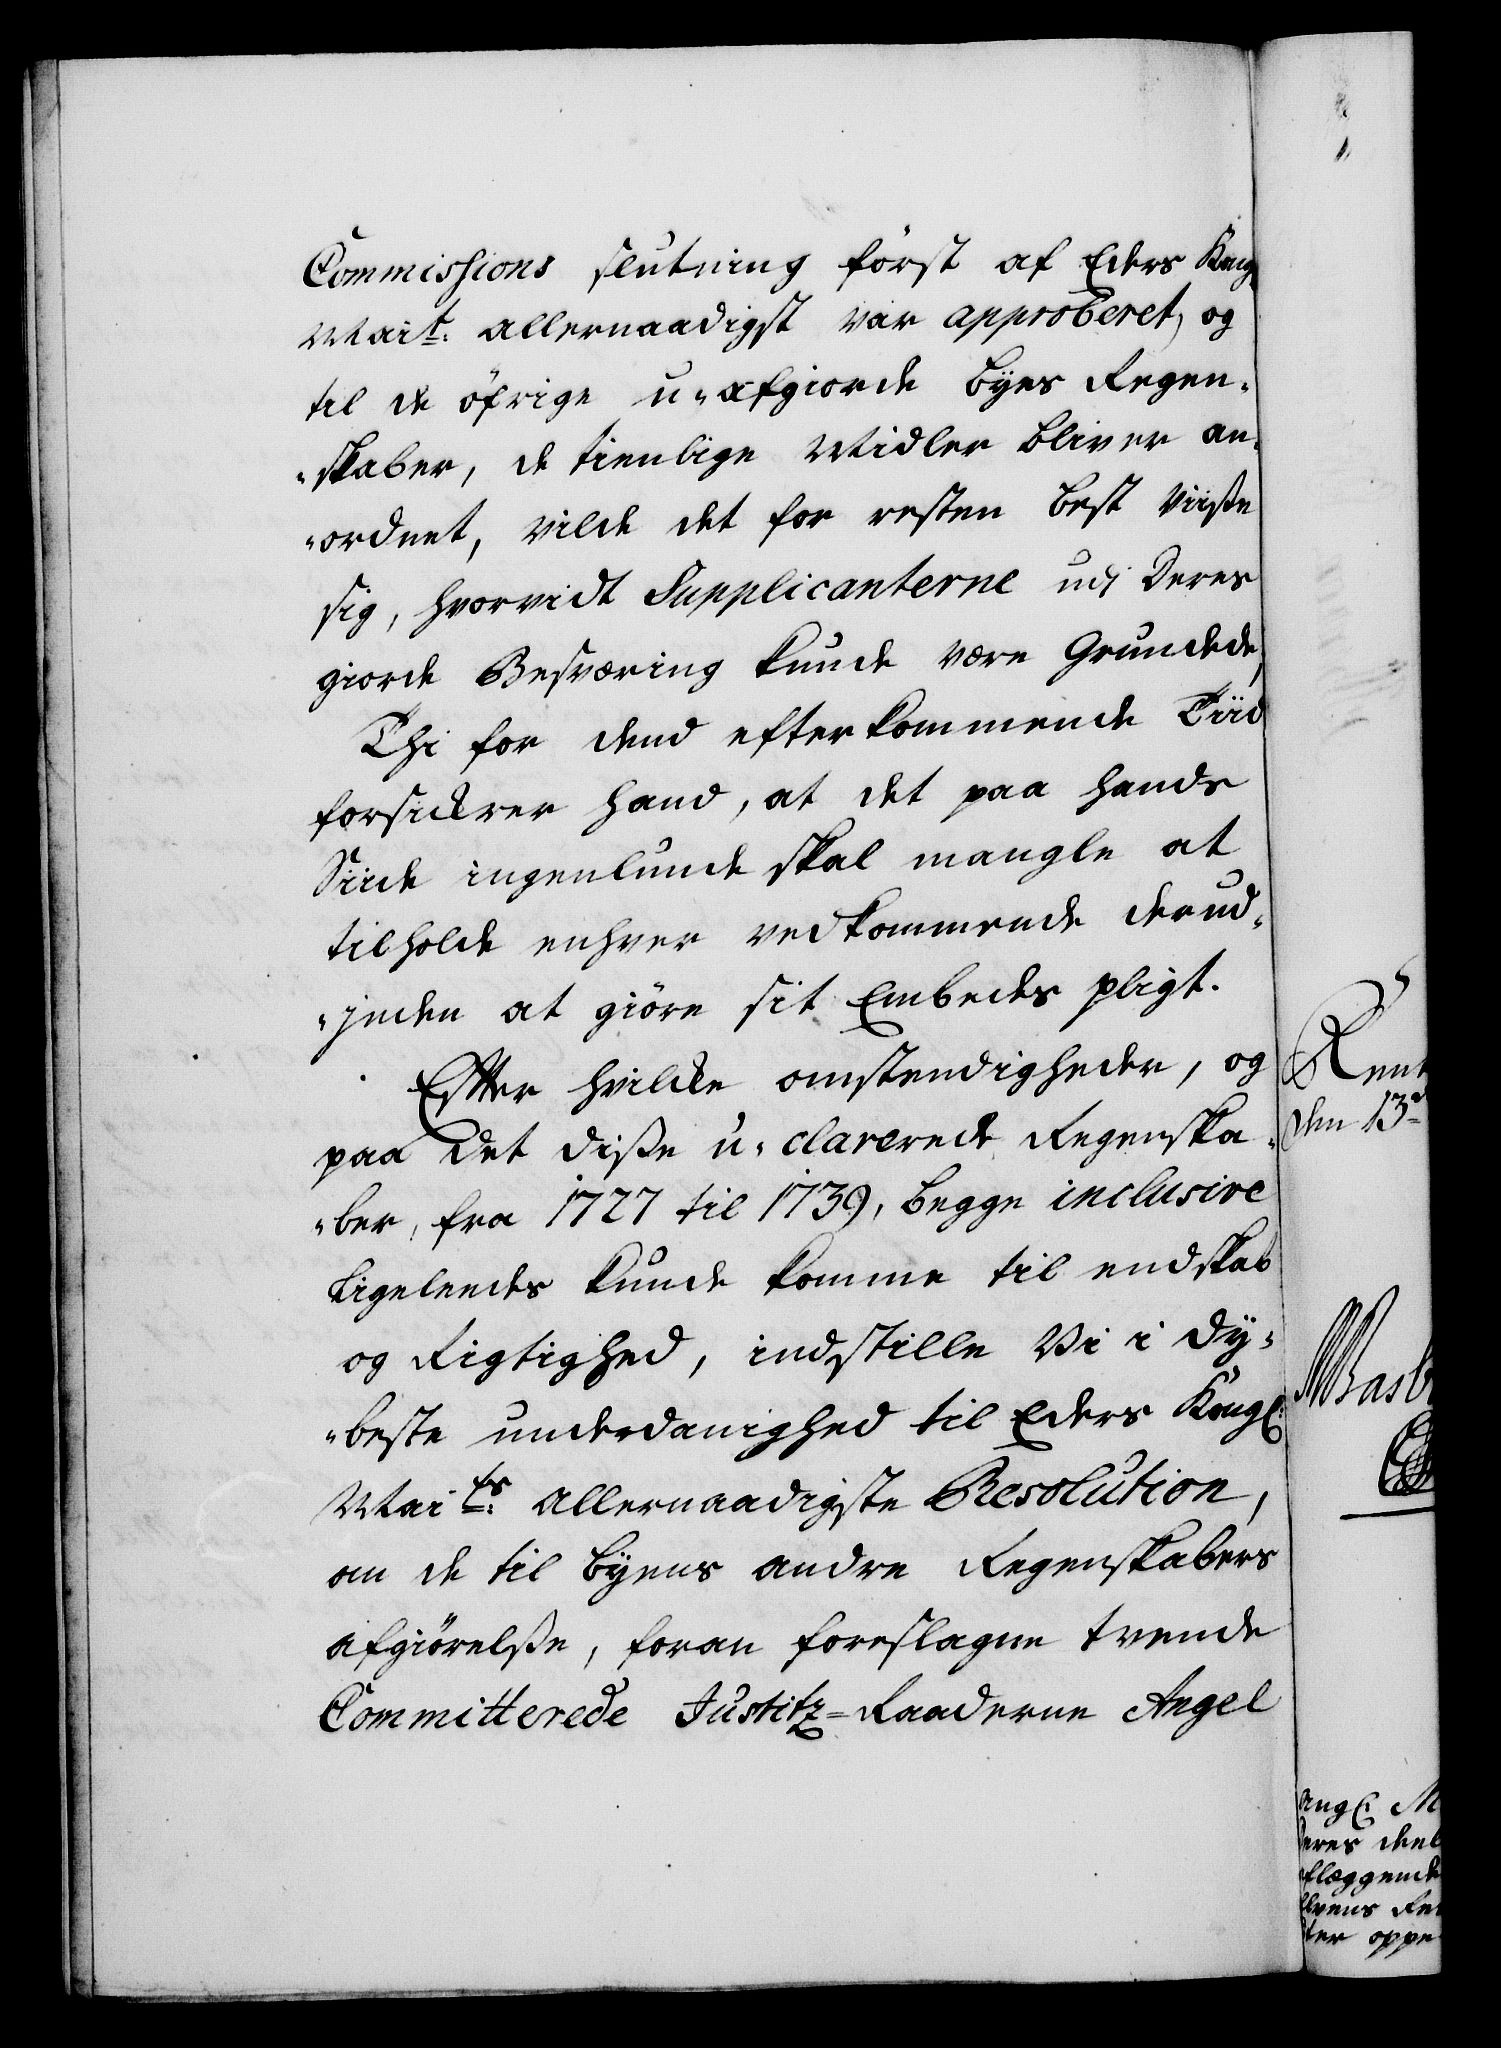 Commissions slutning först af Eders Kong
Mait: allernaadigst var approberet, og
til de öfrige u-afgiorde byes Regen-
-skaber, de tienlige Midler bliver an-
-ordnet, vilde det for resten best viiste
sig, hvorvidt Supplicanterne udj deres
giorde Besværing kunde være Grundede,
Thi for dend efterkommende Tiid
forsickrer hand, at det paa hands
Siide ingenlunde skal mangle at
tilholde enhver vedkommende derud-
-jnden at giöre sit Embedes pligt.
Efter hvilcke omstendigheder, og
paa det disse u-clarerede Regenska-
-ber, fra 1727 til 1739, begge inclusive
ligeleedes kunde komme til endskab
og Rigtighed, indstille Vi i dy-
-beste underdanighed til Eders Kongl:
Maits: allernaadigste Resolution,
om de til byens andre Regenskabers
afgiörelsse, foran foreslagne tvende
Committerede Justitz-Raaderne Angel
Rent
den 13d
ongl: M
deres deel
flæggende
ter oppe